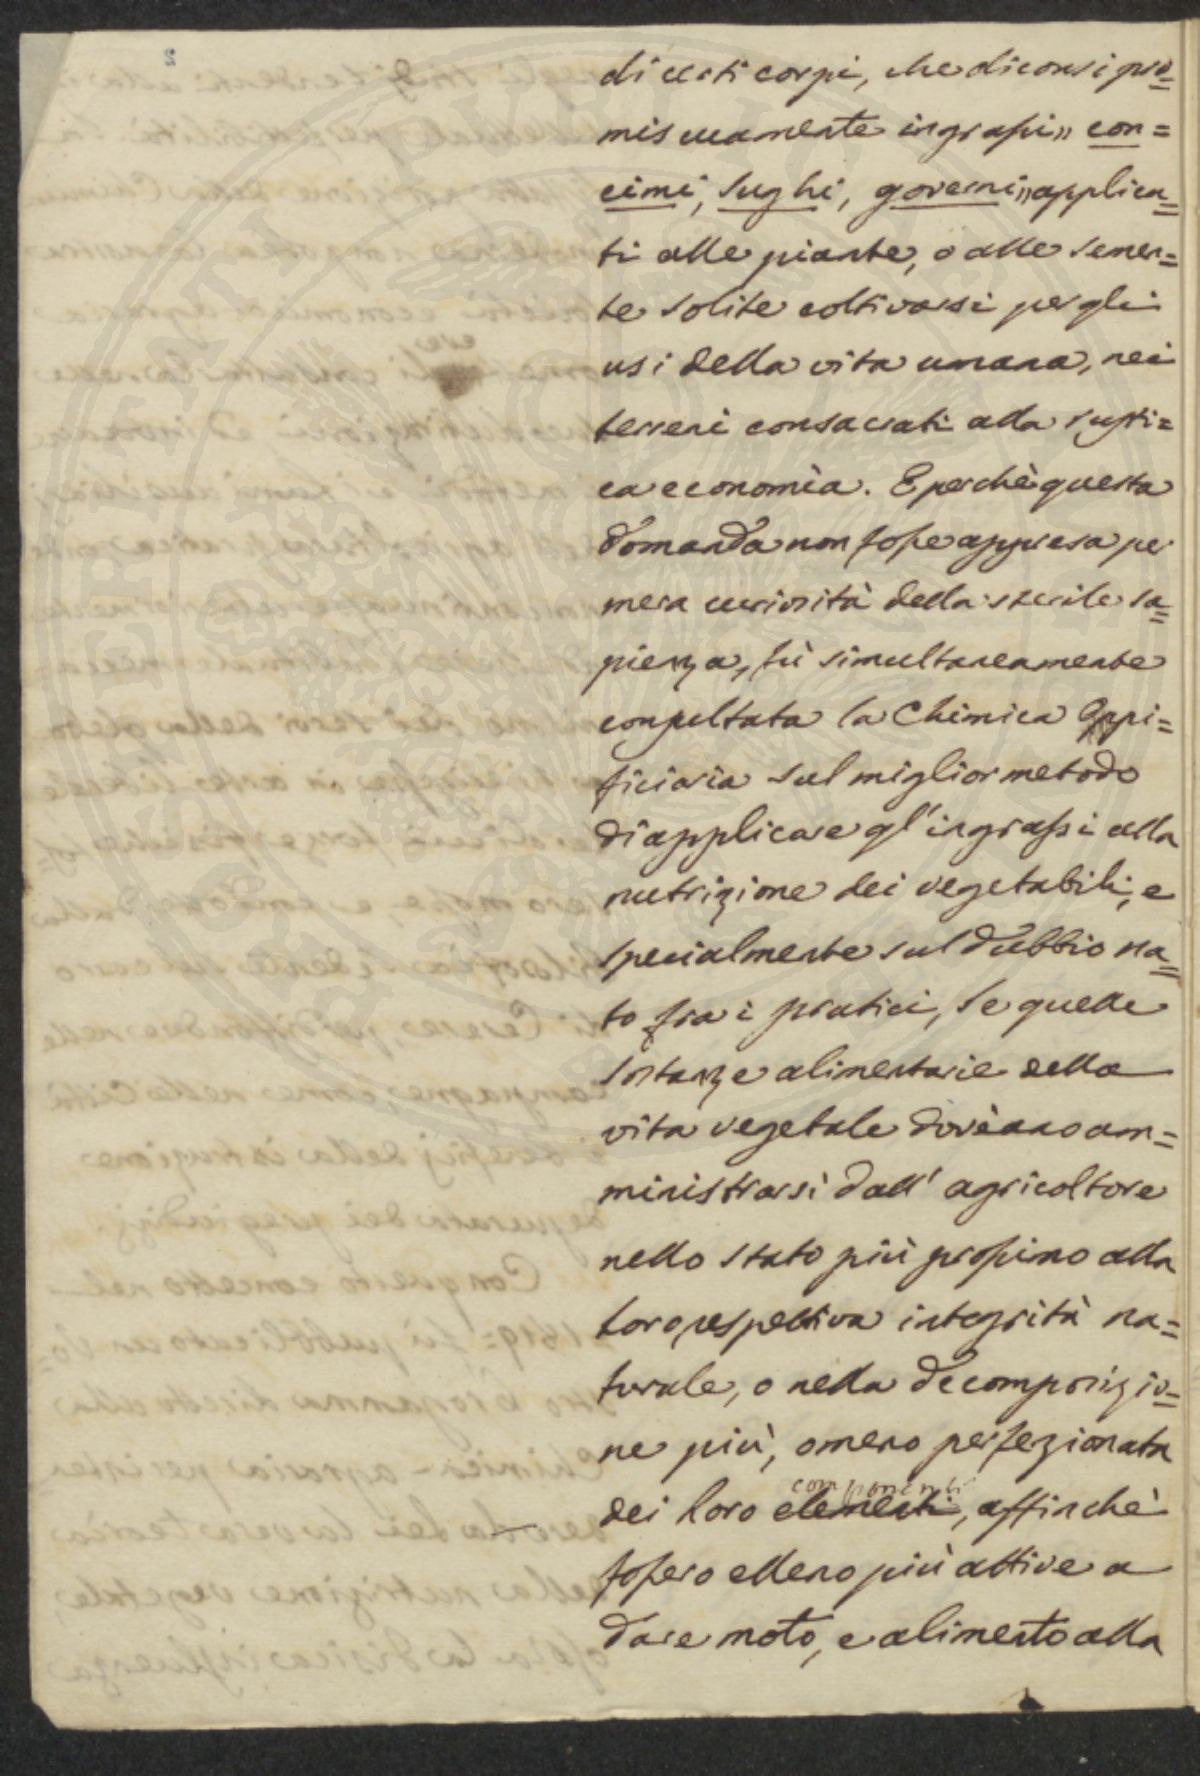 di certi corpi, che diconsi pro=
miscuamente ingrassi „ con=
cimi, sughi, governi „ applica=
ti alle piante, o alle semen=
te solite coltivarsi per gli
usi della vita umana, nei
terreni consacrati alla rusti=
ca economìa. E perchè questa
domanda non fosse appresa per
mera curiosità della sterile sa=
pienza, fù simultaneamente
consultata la Chimica Oppi=
ficiaria sul miglior metodo
di applicare gl'ingrassi alla
nutrizione dei vegetabili, e
specialmente sul dubbio na=
to fra i pratici, se quelle
sostanze alimentarie della
vita vegetale dovèano am=
ministrarsi dall' agricoltore
nello stato più prossimo alla
loro respettiva integrità na=
turale, o nella decomposizio=
ne più, o meno perfezionata
componenti
dei loro elementi, affinchè
fossero elleno più attive a
dare moto, e alimento alla